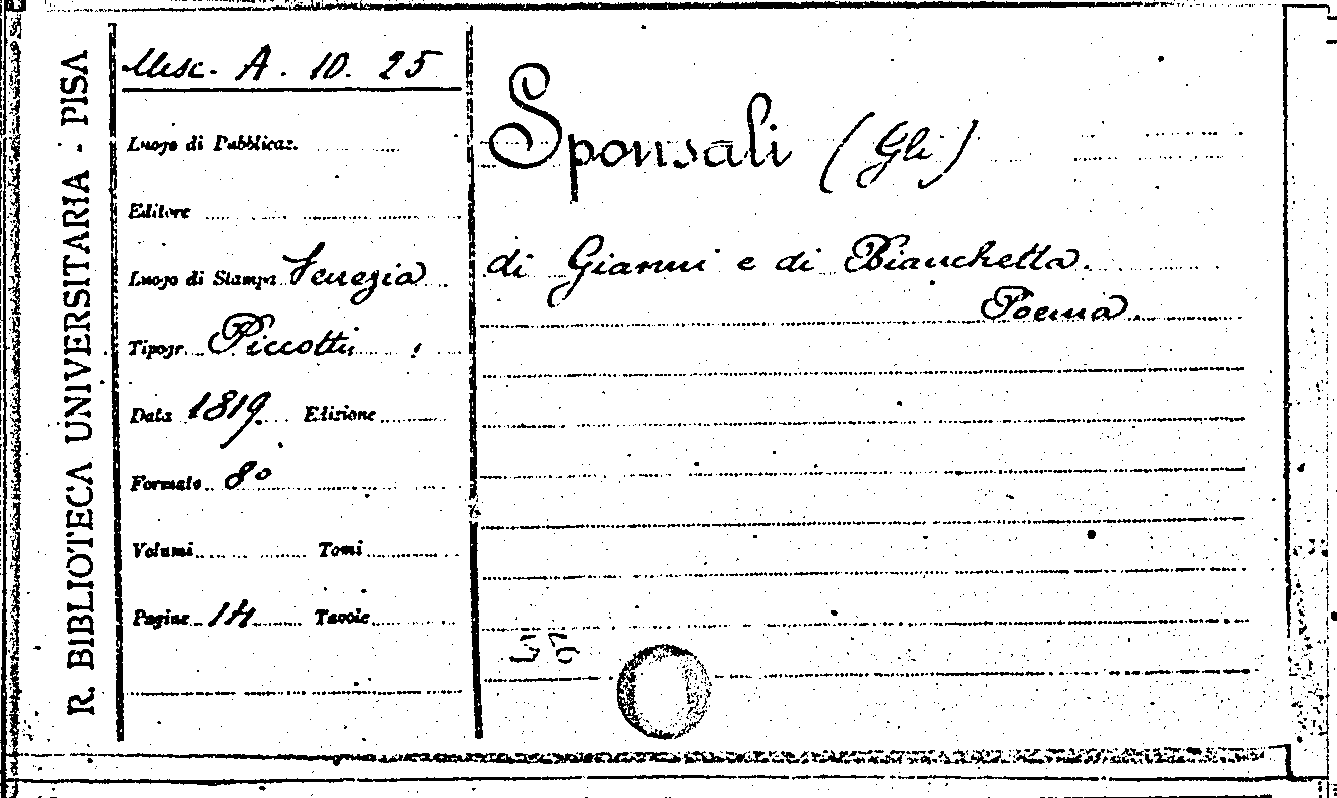 R. BIBLIOTECA UNIVERSITARIA - PISA
Misc. A. 10. 25
Luogo di Pubblicaz.
Editore
Luogo di Stampa Venezia
Tipogr. Picotti
Data 1819 Edizione
Formato 8º
Volumi Tomi
Pagine 14 Tavole
Sponsali (Gli)
di Gianni e di Bianchetta.
Poema.